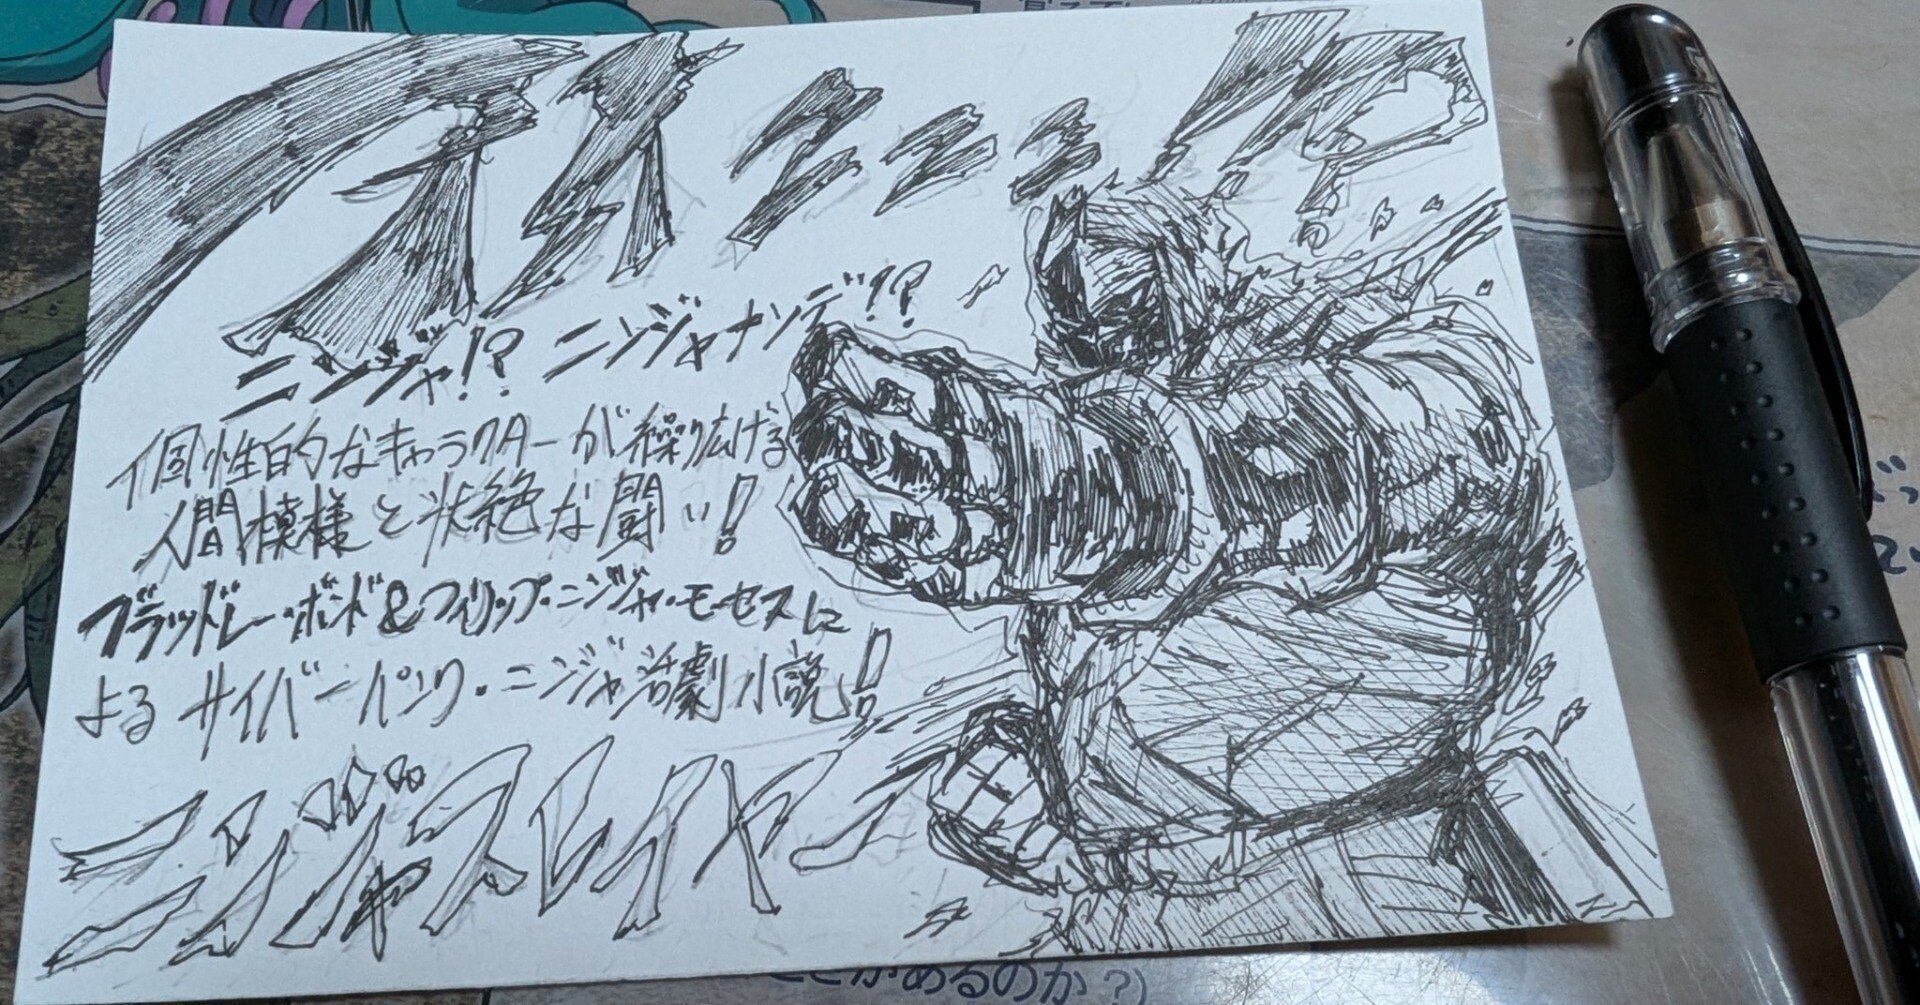 イヤーッ!
ニンジャ!? ニンジャナンデ!?
個性的なキャラクターが繰り広げる
人間模様と壮絶な闘い!
ブラッドレー・ボンド&フィリップ・ニンジャ・モーゼスに
よるサイバーパンク・ニンジャ活劇小説!
ニンジャスレイヤー
ことがあるのか?)